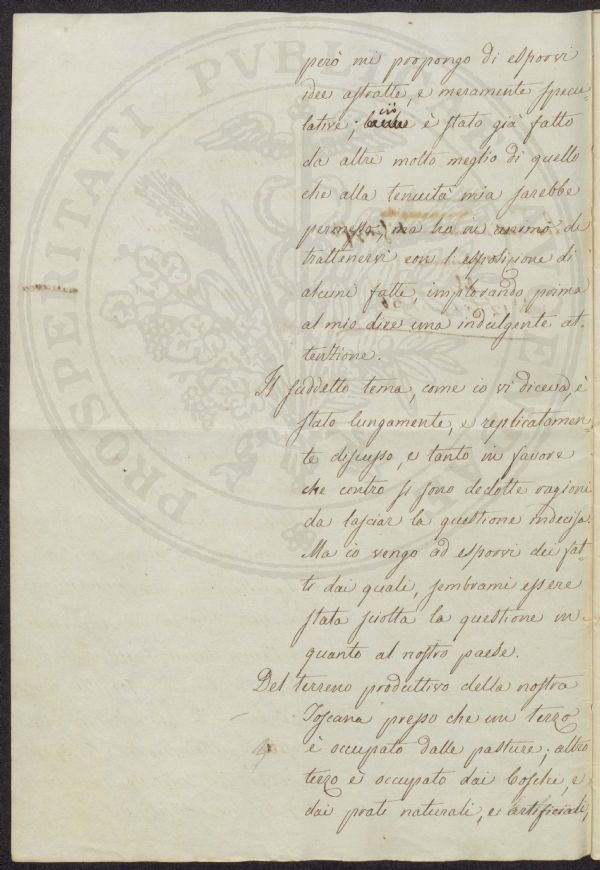 però mi propongo di esporvi
idee astratte, e meramente specu-
lative; ciò è stato già fatto
da altri molto meglio di quello
che alla tenuità mia sarebbe
permesso; ma ho in animo di
trattenervi con l'esposizione di
alcuni fatti, implorando prima
al mio dire una indulgente at-
tenzione.
Il suddetto tema, come io vi diceva, è
stato lungamente, e replicatamen-
te discusso, e tanto in favore
che contro si sono dedotte ragioni
da lasciar la questione indecisa.
Ma io vengo ad esporvi dei fat-
ti dai quali, sembrami essere
stata sciolta la questione in
quanto al nostro paese.
Del terreno produttivo della nostra
Toscana presso che un terzo
è occupato dalle pasture; altro
terzo è occupato dai Boschi, e
dai prati naturali, e artificiali,
PROSPERITATI PVBLICAE